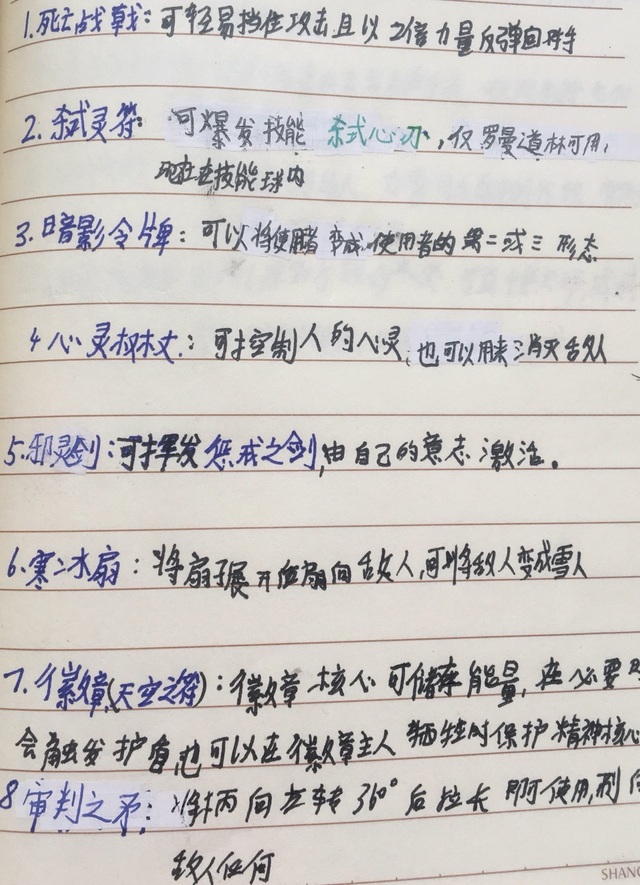 1.死亡战戟:可轻易挡住攻击且以2倍力量反弹回
2.弑灵符:可爆发技能弑式心刃,仅罗曼道林可用,
现在在技能球内
3.暗影令牌:可以将使用者变成使用者的第二或三形态
4心灵权杖:可控制人的心灵,也可以用来消灭敌人
5.邪灵剑:可挥发惩戒之剑,由自己的意志激活。
6.寒冰扇:将扇子展开后扇向敌人,可将敌人变成雪人
7.徽章(天空之符):徽章核心可储存能量,在必要
会触发护盾,也可以在徽章主人牺牲时保护精神核心
8审判之矛:将柄向左转360°后拉长即可使用,刺向
敌人任何
SHANG